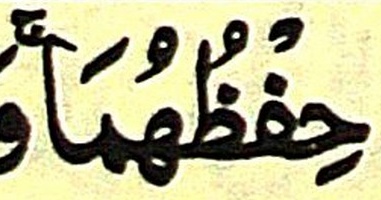 حِفْظُهُمَاۚ وَ